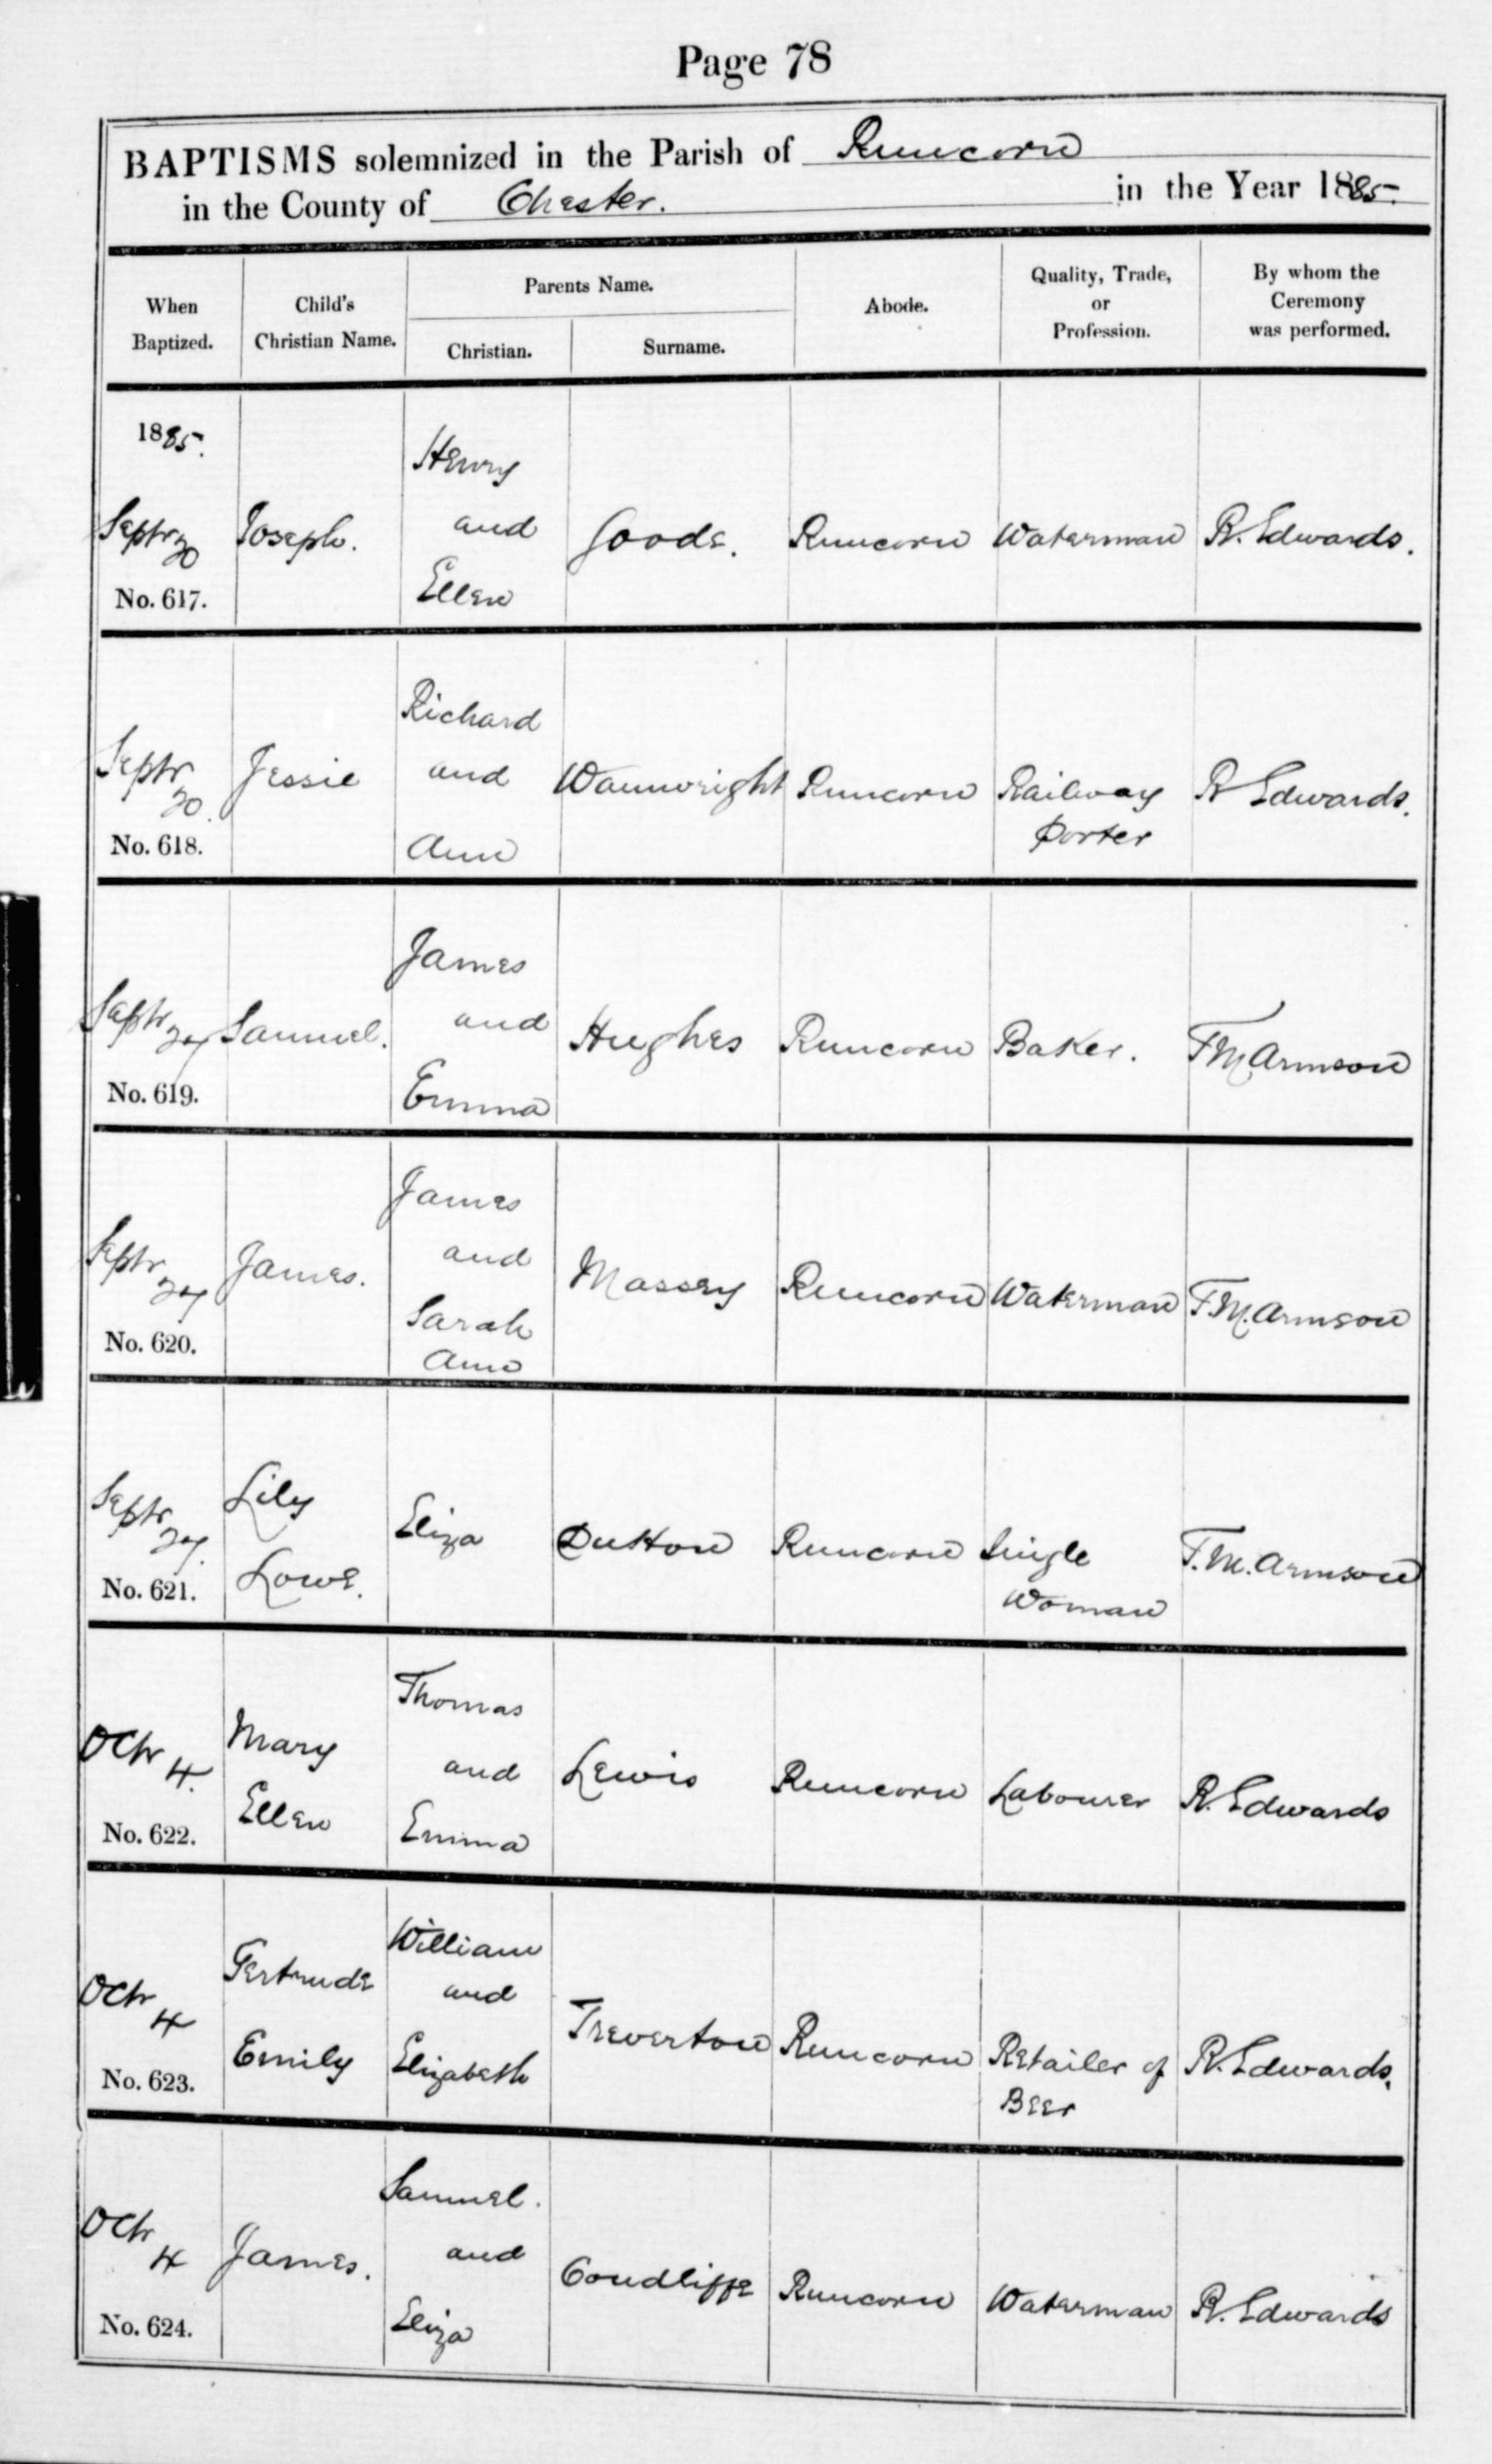 Page 78
BAPTISMS solemnized in the Parish of Runcorn
in the County of Chester. in the Year 1885.
When Baptized.
Child's Christian Name.
Parents Name.
Christian.
Surname.
Abode.
Quality, Trade, or Profession.
By whom the Ceremony was performed.
1885.
Septr 20
No. 617.
Joseph.
Henry
and
Ellen
Goode.
Runcorn
Waterman
R. Edwards.
Septr
20.
No. 618.
Jessie
Richard
and
Ann
Wannwright
Runcorn
Railway
Porter
R Edwards.
Septr 27
No. 619.
Samuel.
James
and
Emma
Hughes
Runcorn
Baker.
F M Armson
Septr
27
No. 620.
James.
James
and
Sarah
Ann
Massey
Runcorn
Waterman
F. M. Armson
Septr
27.
No. 621.
Lily
Lowe.
Eliza
Dutton
Runcorn
Single
Woman
F. M. Armson
Octr
4.
No. 622.
Mary
Ellen
Thomas
and
Emma
Lewis
Runcorn
Labourer
R. Edwards
Octr
4
No. 623.
Gertrude
Emily
William
and
Elizabeth
Treverton
Runcorn
Retailer of
Beer
R. Edwards.
Octr
4
No. 624.
James.
Samuel.
and
Eliza
Condliffe
Runcorn
Waterman
R. Edwards